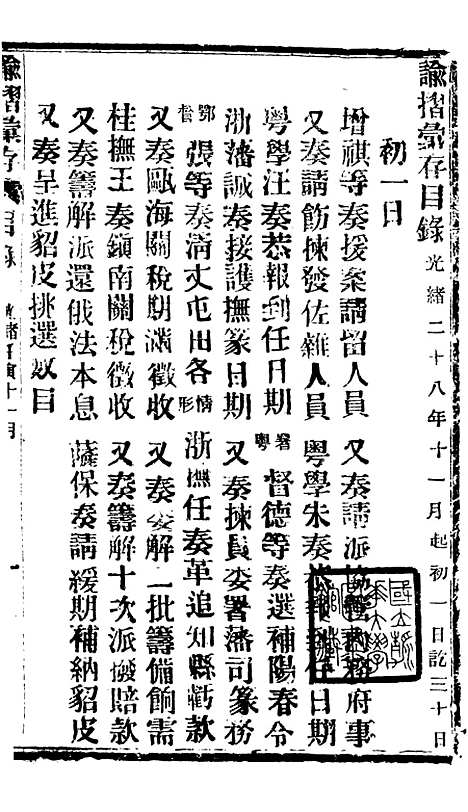 諭摺彙存目錄 光緒二十八年十一月起初一日訖三十日
初一日
增祺等奏援案請留人員 又奏請派 府事
又奏請飭揀發佐雜人員 粵學朱奏 任日期
粵學汪奏恭報到任日期 署粵督德等奏選補陽春令
浙藩誠奏接護撫篆日期 又奏揀員委署藩司篆務
鄂督張等奏清丈屯田各情形 浙撫任奏革追知縣虧款
又奏甌海關稅期滿徵收 又奏 解二批籌備餉需
桂撫王奏鎮南關稅徵收 又奏籌解十次派撥賠款
又奏籌解派還俄法本息 薩保奏請緩期補納貂皮
又奏呈進貂皮挑選數目
諭摺彙存 目錄 光緒壬寅十一月
國立 大學